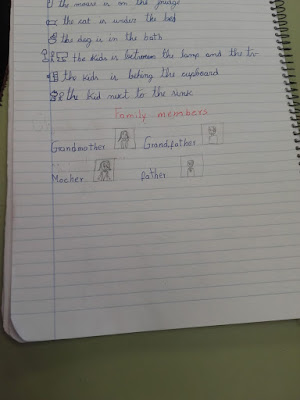 the mouse is on the fridge
the cat is under the bed
the dog is in the bath
the kids is between the lamp and the tv
the kids is behing the cupboard
the kid next to the sink
Family members
Grandmother Grandfather
Mother father